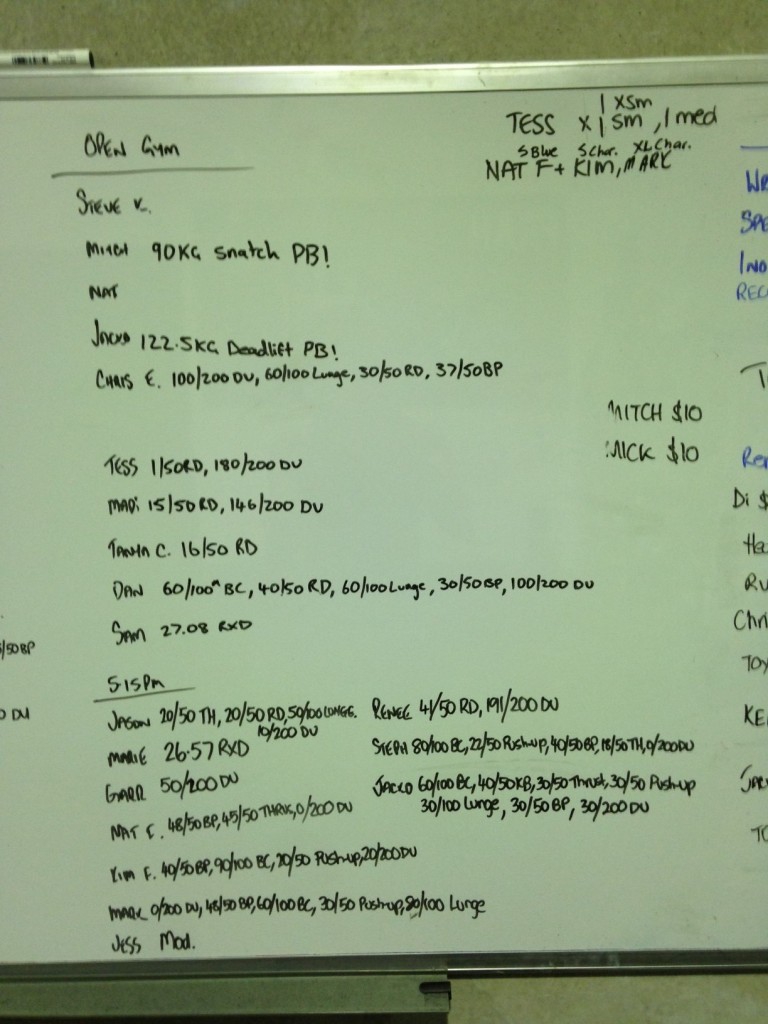 OPEN GYM
1 XSM
TESS X 1 SM, 1 med
S Blue S Char. XL Char.
NAT F + KIM, MARK
STEVE K.
MITCH 90KG snatch PB!
NAT
JACKO 122.5KG Deadlift PB!
CHRIS E. 100/200 DU, 60/100 Lunge, 30/50 RD, 37/50 BP
MITCH $10
MICK $10
TESS 1/50RD, 180/200 DU
MADI 15/50 RD, 146/200 DU
TANYA C. 16/50 RD
DAN 60/100m BC, 40/50 RD, 60/100 Lunge, 30/50 BP, 100/200 DU
SAM 27.08 RXD
5:15PM
JASON 20/50 TH, 20/50 RD, 50/100 LUNGE.
10/200 DU
MARIE 26.57 RXD
50/200 DU
NAT F. 48/50 BP, 45/50 0/200 DU
KIM F. 40/50 BP, 90/100 BC, 20/50 Push-up, 20/200 DU
MARK 0/200 DU, 48/50 BP, 60/100 BC, 30/50 Push-up, 80/100 Lunge
JESS Mod.
RENEE 41/50 RD, 191/200 DU
STEPH 80/100 BC, 22/50 Push-up, 40/50 BP, 18/50 TH, 0/200 DU
JACKO 60/100 BC, 40/50 KB, 30/50 Thrust, 30/50 Push-up
30/100 Lunge, 30/50 BP, 30/200 DU
/50 BP
DU
WR
SPE
INO
REC
T
Ren
Di $
Ha
RU
Chri
TOY
KE
JAR
TO